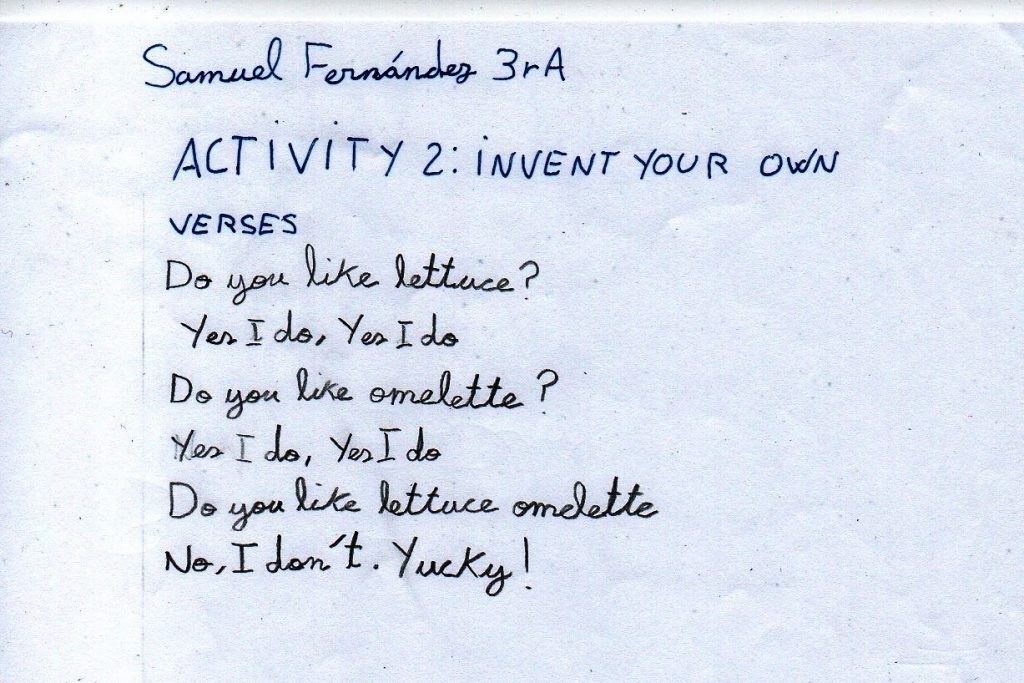 Samuel Fernández 3rA
ACTIVITY 2: INVENT YOUR OWN
VERSES
Do you like lettuce?
Yes I do, Yes I do
Do you like omelette?
Yes I do, Yes I do
Do you like lettuce omelette
No, I don´t. Yucky!